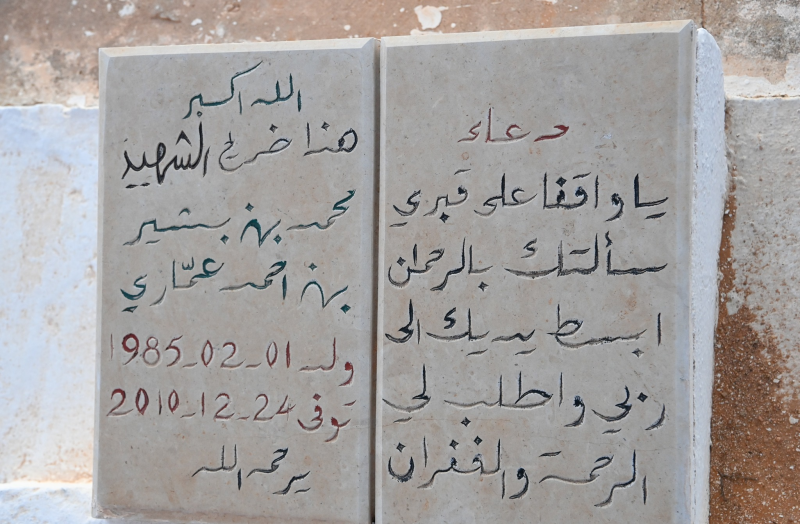 دعاء
يا واقفا على قبري
سألتك بالرحمان
ابسط يديك الى
ربي واطلب لي
الرحمة والغفران
الله اكبر
هذا ضريح الشهيد
محمد بن بشير
بن احمد عمّاري
ولد 01-02-1985
توفى 24-12-2010
يرحمه الله